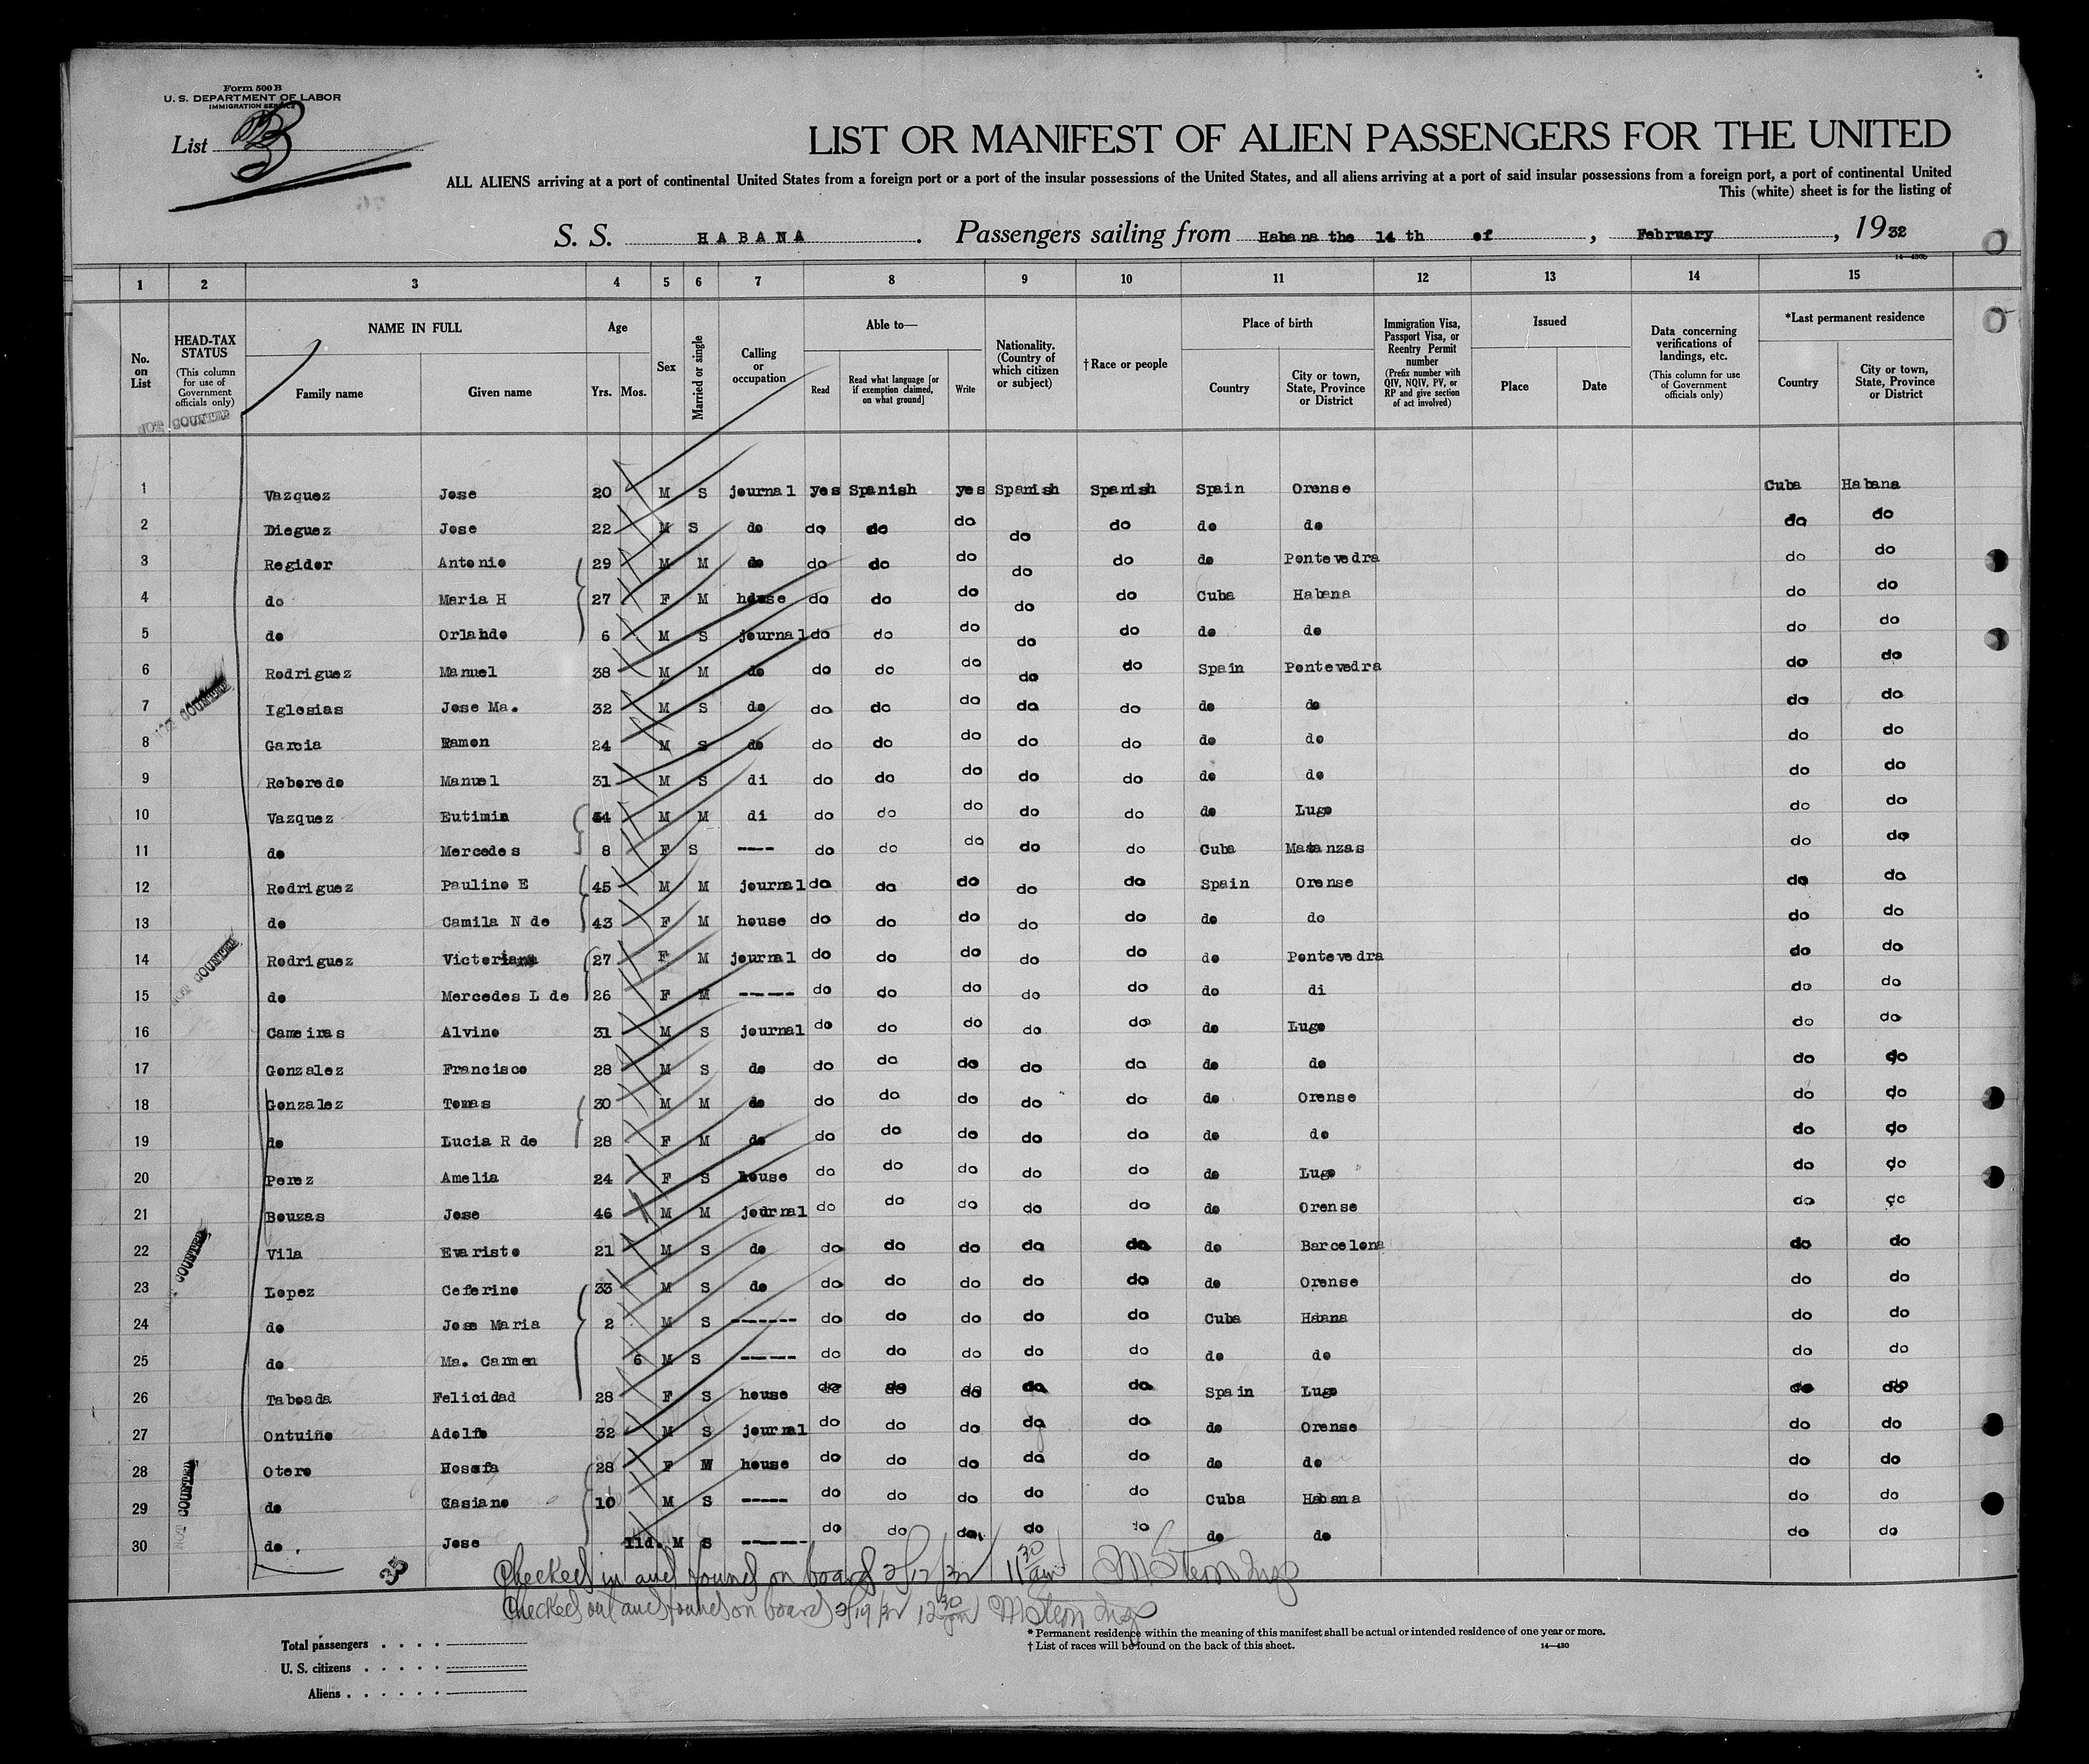 Form 500 B
U. S. DEPARTMENT OF LABOR
IMMIGRATION SERVICE
List B
LIST OR MANIFEST OF ALIEN PASSENGERS FOR THE UNITED
ALL ALIENS arriving at a port of continental United States from a foreign port or a port of the insular possessions of the United States, and all aliens arriving at a port of said insular possessions from a foreign port, a port of continental United
This (white) sheet is for the listing of
S. S. HABANA . Passengers sailing from Habana the 14 th of , February , 19 32
14—430b
1 2 3 4 5 6 7 8 9 10 11 12 13 14 15
No. on List
HEAD-TAX STATUS (This column for use of Government officials only)
NAME IN FULL Family name Given name
Age Yrs. Mos.
Sex
Married or single
Calling or occupation
Able to— Read Read what language [or if exemption claimed, on what ground] Write
Nationality. (Country of which citizen or subject)
†Race or people
Place of birth Country City or town, State, Province or District
Immigration Visa, Passport Visa, or Reentry Permit number (Prefix number with QIV, NQIV, PV, or RP and give section of act involved)
Issued Place Date
Data concerning verifications of landings, etc. (This column for use of Government officials only)
*Last permanent residence Country City or town, State, Province or District
NOT COUNTED
1 Vazquez Jose 20 M S journal yes Spanish yes Spanish Spanish Spain Orense Cuba Habana
2 Dieguez Jose 22 M S do do do do do do do do do do
3 Regidor Antonio 29 M M do do do do do do do Pontevedra do do
4 do Maria H 27 F M house do do do do do Cuba Habana do do
5 do Orlando 6 M S journal do do do do do do do do do
6 Rodriguez Manuel 38 M M do do do do do do Spain Pontevedra do do
7 Iglesias Jose Ma. 32 M S do do do do do do do do do do
NOT COUNTED
8 Garcia Ramon 24 M S do do do do do do do do do do
9 Reboredo Manuel 31 M S di do do do do do do do do do
10 Vazquez Eutimia M M di do do do do do do Lugo do do
11 do Mercedes 8 F S ---- do do do do do Cuba Matanzas do do
12 Rodriguez Paulino E 45 M M journal do do do do do Spain Orense do do
13 do Camila N de 43 F M house do do do do do do do do do
14 Rodriguez 27 F M journal do do do do do do Pontevedra do do
NOT COUNTED
15 do Mercedes L de 26 F M ------ do do do do do do di do do
16 Cameiras Alvino 31 M S journal do do do do do do Lugo do do
17 Gonzalez Francisco 28 M S do do do do do do do do do do
18 Gonzalez Tomas 30 M M do do do do do do do Orense do do
19 do Lucia R de 28 F M do do do do do do do do do do
20 Perez Amelia 24 F S house do do do do do do Lugo do do
21 Bouzas Jose 46 M M journal do do do do do do Orense do do
22 Vila Evaristo 21 M S do do do do do do do Barcelona do do
COUNTED
23 Lopez Ceferino 33 M S do do do do do do do Orense do do
24 do Jose Maria 2 M S ------- do do do do do Cuba Habana do do
25 do Ma. Carmen 6 M S ------ do do do do do do do do do
26 Taboada Felicidad 28 F S house do do do do do Spain Lugo do do
27 Ontuiño Adolfo 32 M S journal do do do do do do Orense do do
28 Otero 28 F M house do do do do do do do do do
29 do Casiano 10 M S ----- do do do do do Cuba Habana do do
NOT COUNTED
30 do . Jose 11d. M S ------- do do do do do do do do do
35
Checked in and found on board 2/17/32 11 30 am M Stern Insp
Checked out and found on board 2/19/32 12 30 pm M Stern Insp
Total passengers
U. S. citizens
Aliens
* Permanent residence within the meaning of this manifest shall be actual or intended residence of one year or more.
† List of races will be found on the back of this sheet. 14—430